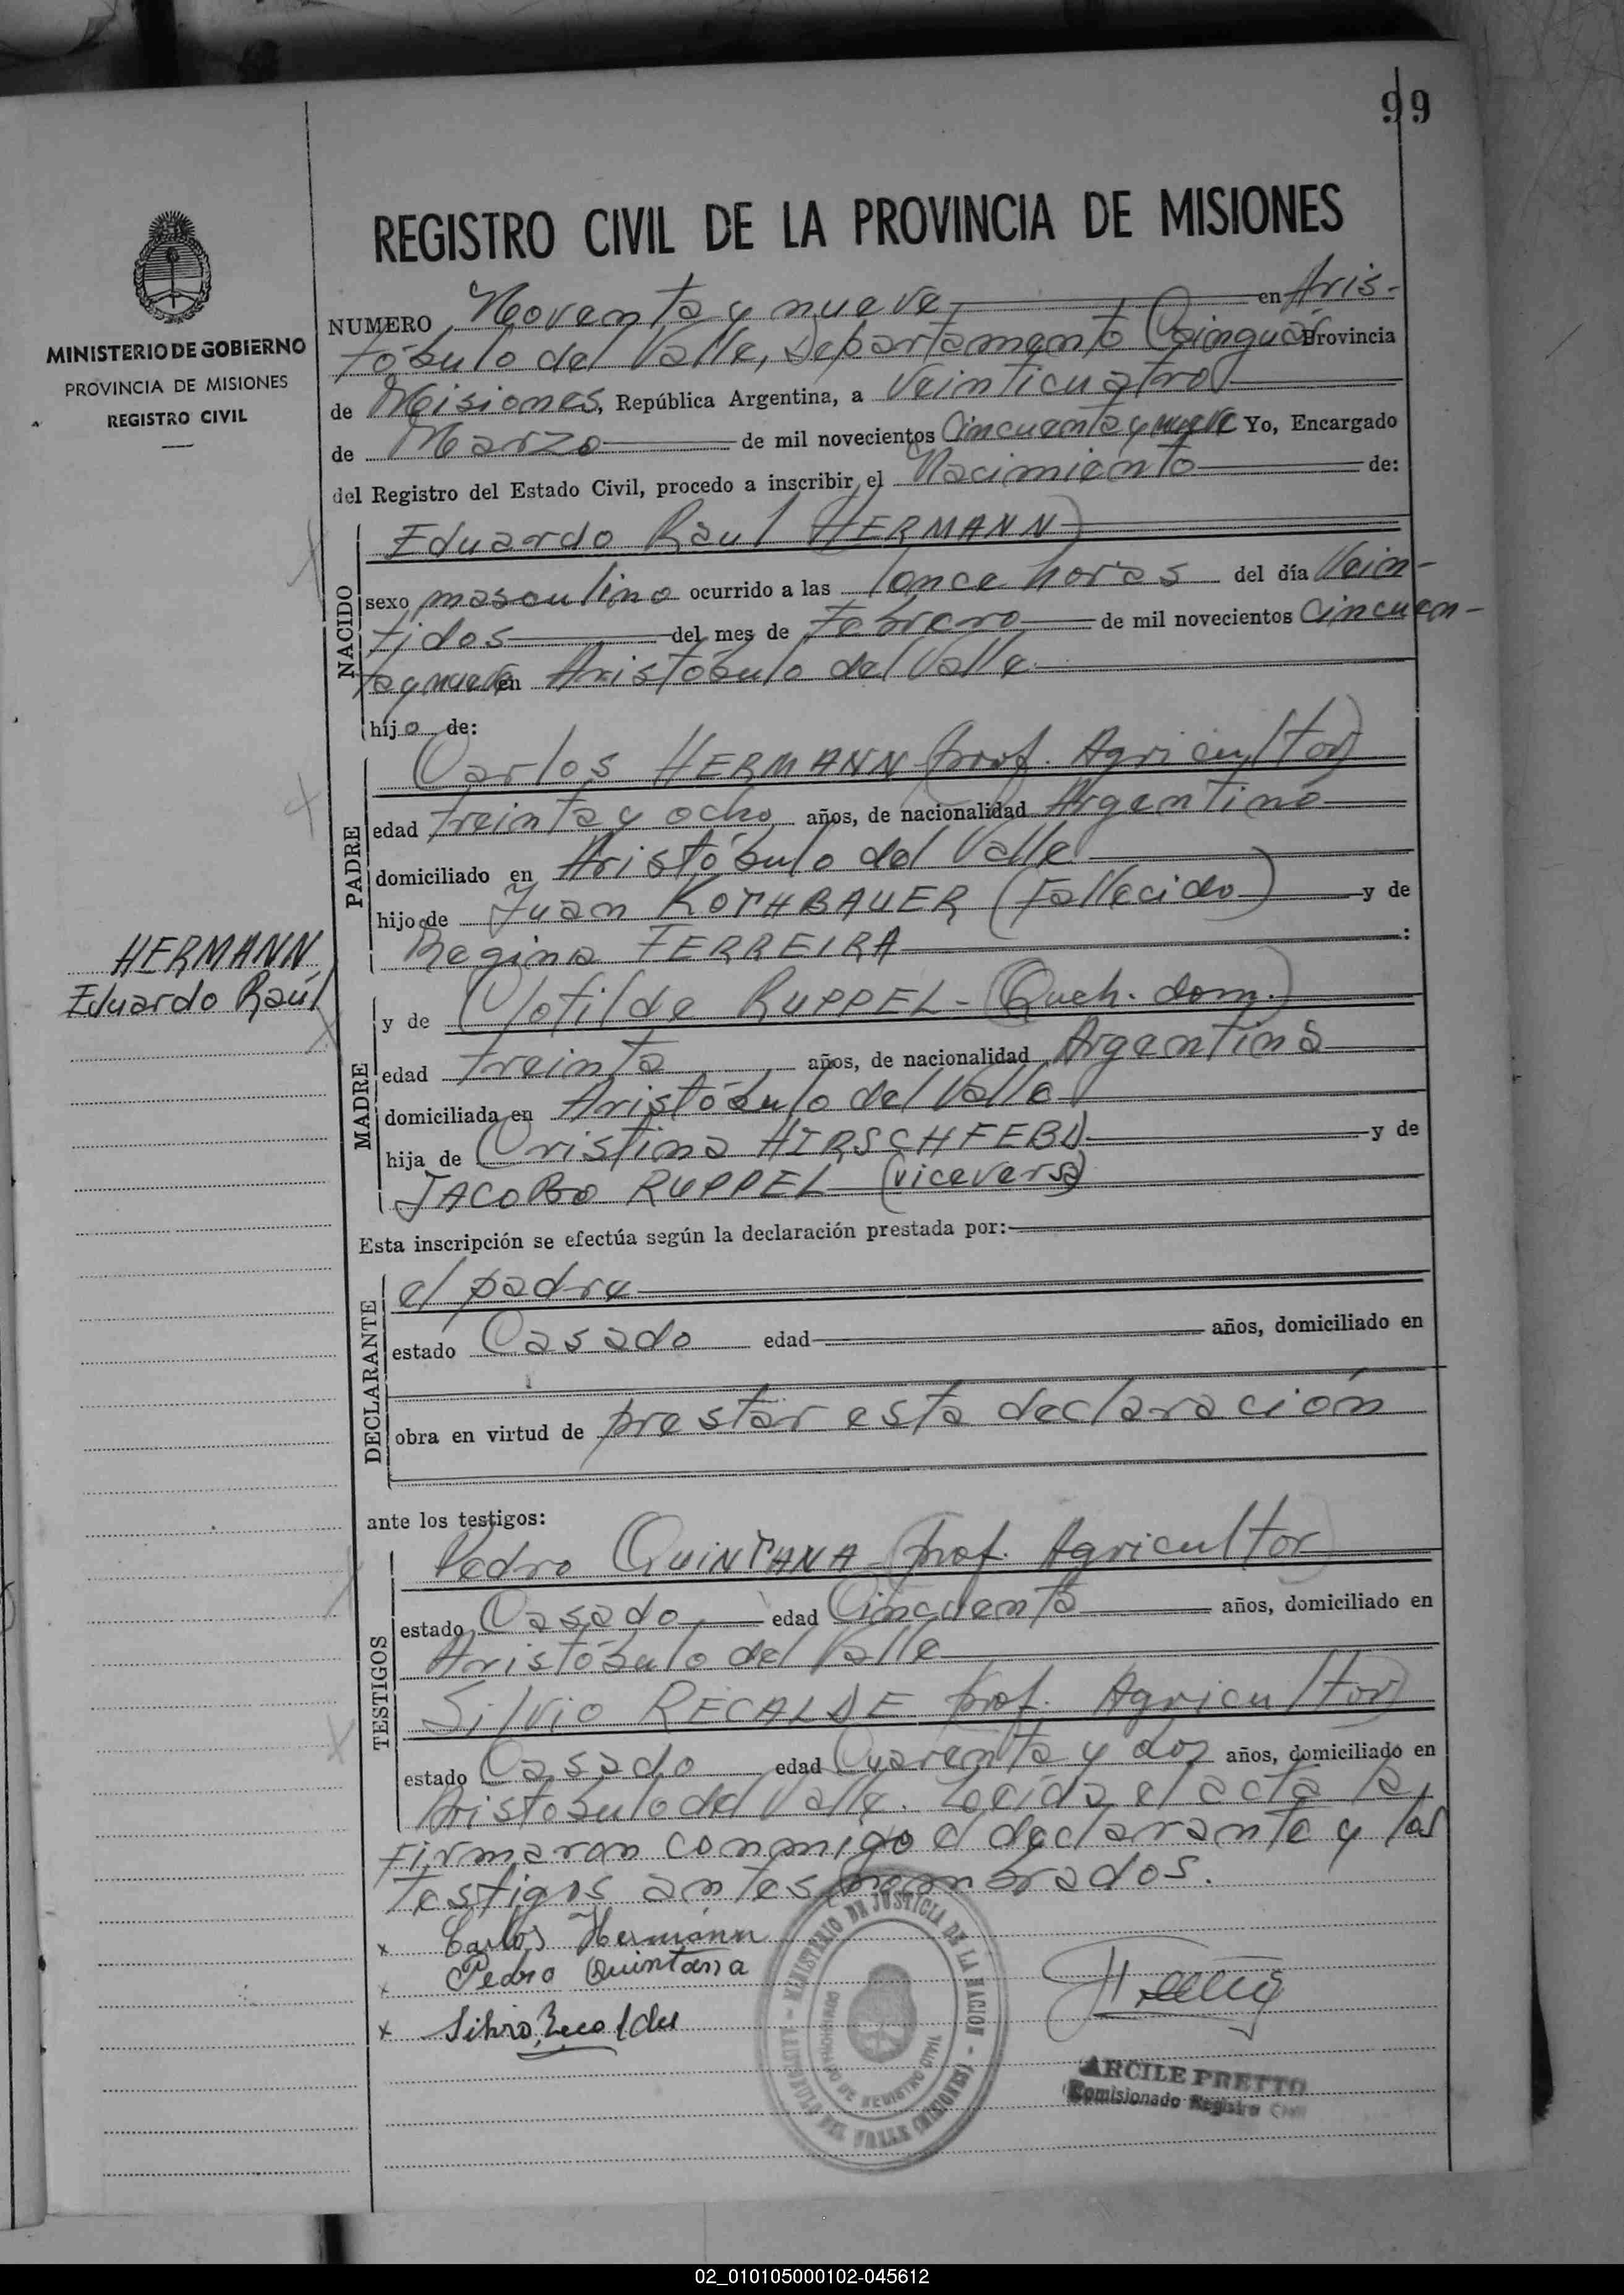 99
REGISTRO CIVIL DE LA PROVINCIA DE MISIONES
MINISTERIO DE GOBIERNO
PROVINCIA DE MISIONES
REGISTRO CIVIL
NUMERO Noventa y nueve en Aris-
tóbulo del Valle, Departamento Cainguás Provincia
de Misiones, República Argentina, a Veinticuatro
de Marzo de mil novecientos Cincuenta y nueve Yo, Encargado
del Registro del Estado Civil, procedo a inscribir el Nacimiento de:
NACIDO
Eduardo Raul HERMANN
sexo masculino ocurrido a las once horas del día Vein-
tidos del mes de Febrero de mil novecientos Cincuen-
ta y nueve en Aristóbulo del Valle
hijo de:
PADRE
Carlos HERMANN (prof. Agricultor)
edad treinta y ocho años, de nacionalidad Argentino
domiciliado en Aristóbulo del Valle
hijo de Juan ROTHBAUER (Fallecido) y de
Regina FERREIRA :
HERMANN
Eduardo Raúl
MADRE
y de Clotilde RUPPEL - (Queh. dom.)
edad treinta años, de nacionalidad Argentina
domiciliada en Aristóbulo del Valle
hija de Cristina HIRSCHFEBD y de
JACOBO RUPPEL (viceversa)
Esta inscripción se efectúa según la declaración prestada por:
DECLARANTE
el padre
estado Casado edad años, domiciliado en
obra en virtud de prestar esta declaración
ante los testigos:
TESTIGOS
Pedro QUINTANA (prof. Agricultor)
estado Casado edad Cincuenta años, domiciliado en
Aristóbulo del Valle
Silvio RECALDE (prof. Agricultor)
estado Casado edad Cuarenta y dos años, domiciliado en
Aristobulo del Valle. Leída el acta la
firmaron conmigo el declarante y los
testigos antes nombrados.
x Carlos Hermann
x Pedro Quintana
x Silvio Recalde
MINISTERIO DE JUSTICIA DE LA NACION - ARISTOBULO DEL VALLE (MISIONES) -
COMISIONADO DE REGISTRO CIVIL
ARCILE PRETTO
Comisionado Registro Civil
02_010105000102-045612